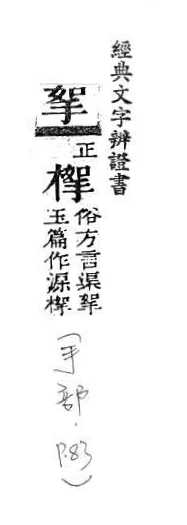 經典文字辨證書
挐
正
俗方言渠挐
玉篇作
(手部.P.83)